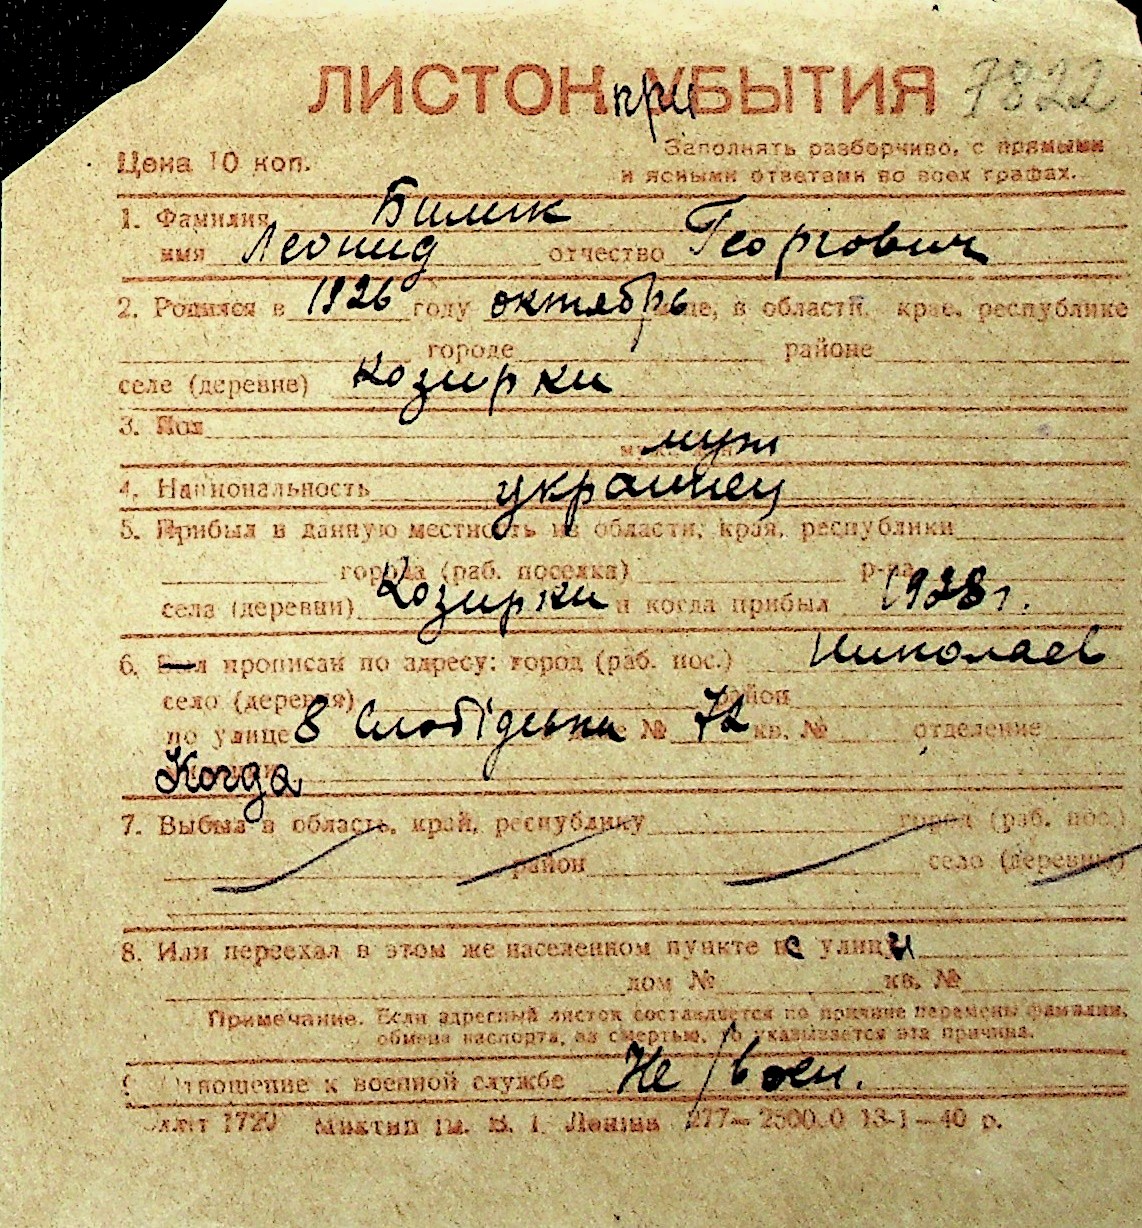 ЛИСТОК при БЫТИЯ 7822
Цена 10 коп.
Заполнять разборчиво, с прямыми
и ясными ответами во всех графах.
1. Фамилия Билык
имя Леонид отчество Георгович
2. Родился в 1926 году октябрь це, в области, крае, республике
городе районе
селе (деревне) Козирки
3. Пол муж
4. Национальность украинец
5. Прибыл в данную местность из области, края, республики
города (раб. поселка) р-на
села (деревни) Козирки и когда прибыл 1928 г.
6. Был прописан по адресу: город (раб. пос.) Николаев
село (деревня) район
по улице 8 Слобідська № 72 кв. № отделение
Когда
7. Выбыл в область, край, республику город (раб. пос.)
район село (деревню)
8. Или переехал в этом же населенном пункте с улицы
дом № кв. №
Примечание. Если адресный листок составляется по причине перемены фамилии,
обмена паспорта, за смертью, то указывается эта причина.
9. Отношение к военной службе Не/воен.
1720 Миктип ім. В. І. Леніна 277—2500.0 13-1—40 р.